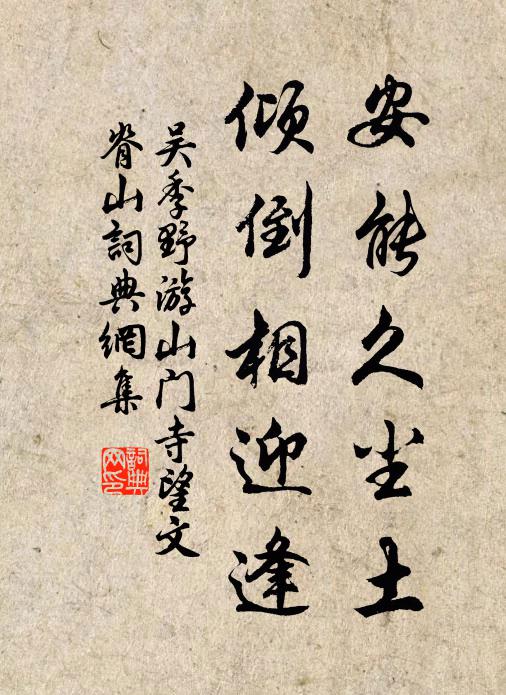 安能久尘土
倾倒相迎逢
吴季野游山门寺望文
脊山詞典網集
詞典网印